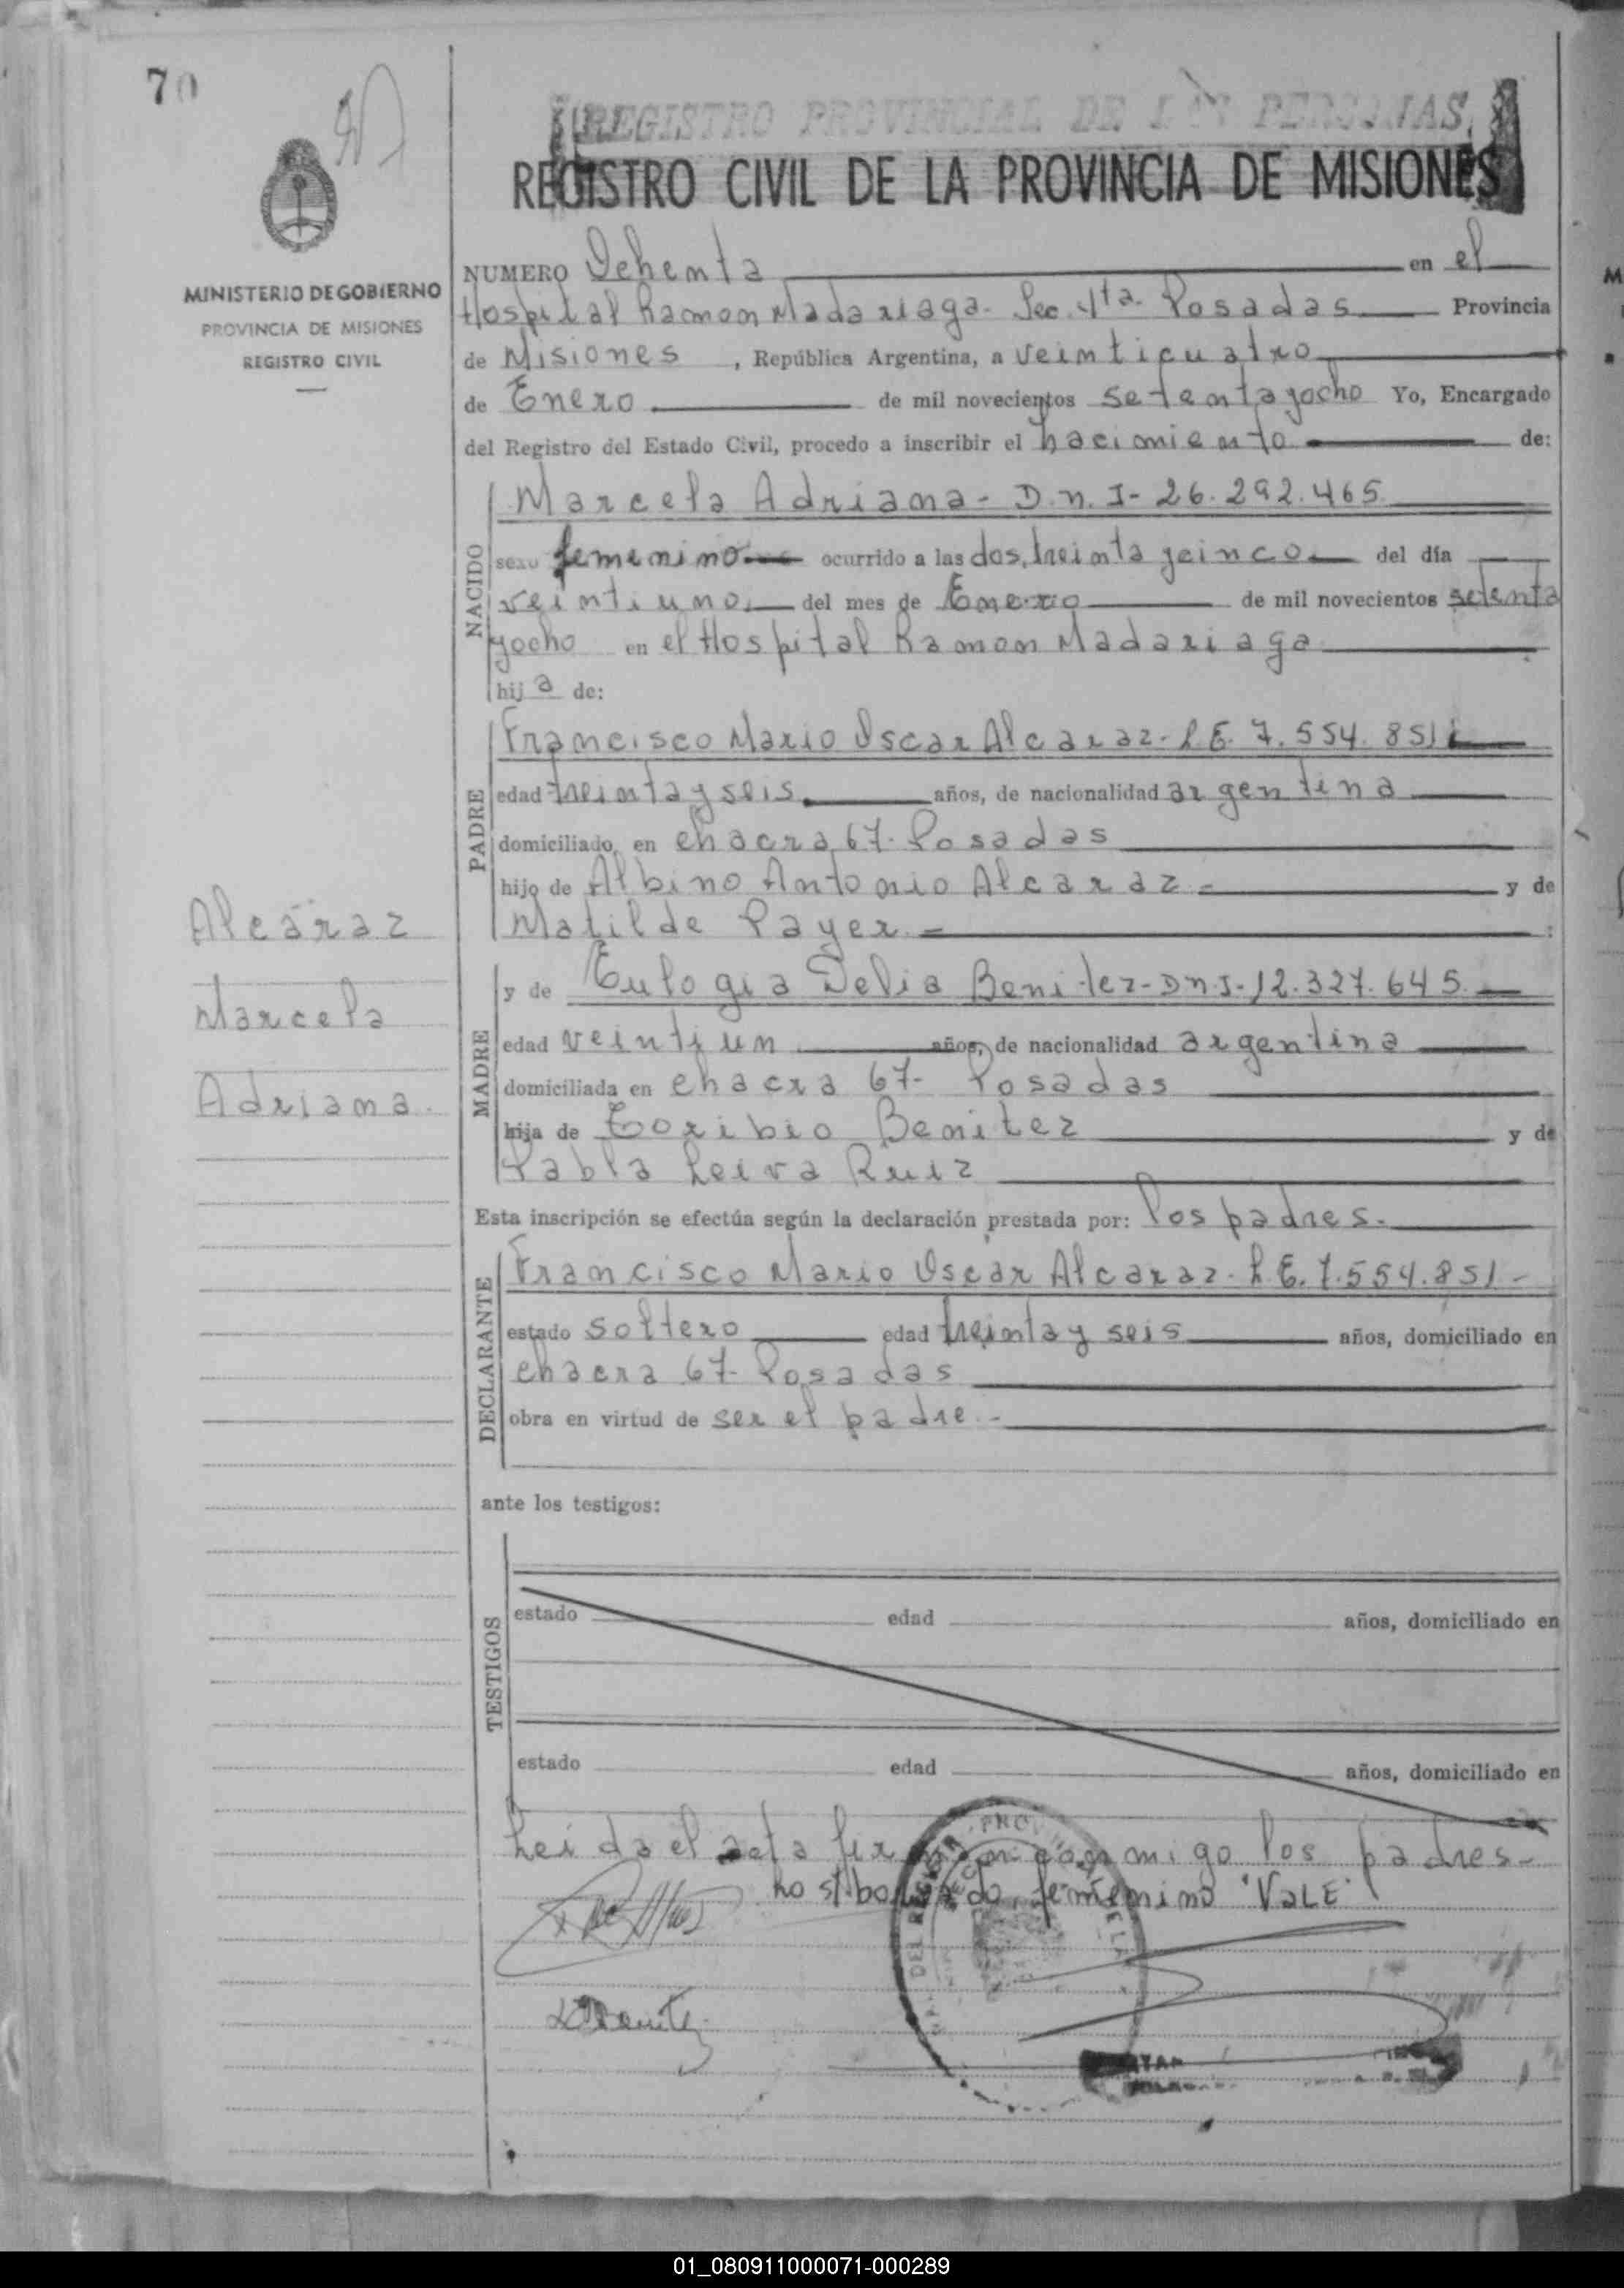 70
REGISTRO PROVINCIAL DE LAS PERSONAS
REGISTRO CIVIL DE LA PROVINCIA DE MISIONES
MINISTERIO DE GOBIERNO
PROVINCIA DE MISIONES
REGISTRO CIVIL
NUMERO Ochenta en el
Hospital Ramon Madariaga - Sec. 4ta. Posadas Provincia
de Misiones , República Argentina, a veinticuatro
de Enero de mil novecientos setenta y ocho Yo, Encargado
del Registro del Estado Civil, procedo a inscribir el nacimiento de:
NACIDO
Marcela Adriana - D.N.I - 26.292.465
sexo femenino ocurrido a las dos, treinta y cinco del día
veintiuno del mes de Enero de mil novecientos setenta
y ocho en el Hospital Ramon Madariaga
hija de:
PADRE
Francisco Mario Oscar Alcaraz - L.E. 7.554.851
edad treinta y seis años, de nacionalidad argentina
domiciliado en chacra 67 - Posadas
hijo de Albino Antonio Alcaraz - y de
Matilde Payer - :
MADRE
y de Eulogia Delia Benitez - DNI - 12.327.645
edad veintiun años, de nacionalidad argentina
domiciliada en chacra 67 - Posadas
hija de Toribio Benitez y de
Pabla Leiva Ruiz
Esta inscripción se efectúa según la declaración prestada por: los padres.
DECLARANTE
Francisco Mario Oscar Alcaraz - L.E. 7.554.851 -
estado soltero edad treinta y seis años, domiciliado en
chacra 67 - Posadas
obra en virtud de ser el padre -
Alcaraz
Marcela
Adriana.
ante los testigos:
TESTIGOS
estado edad años, domiciliado en
estado edad años, domiciliado en
Leida el acta firman conmigo los padres -
femenino "VALE"
01_080911000071-000289